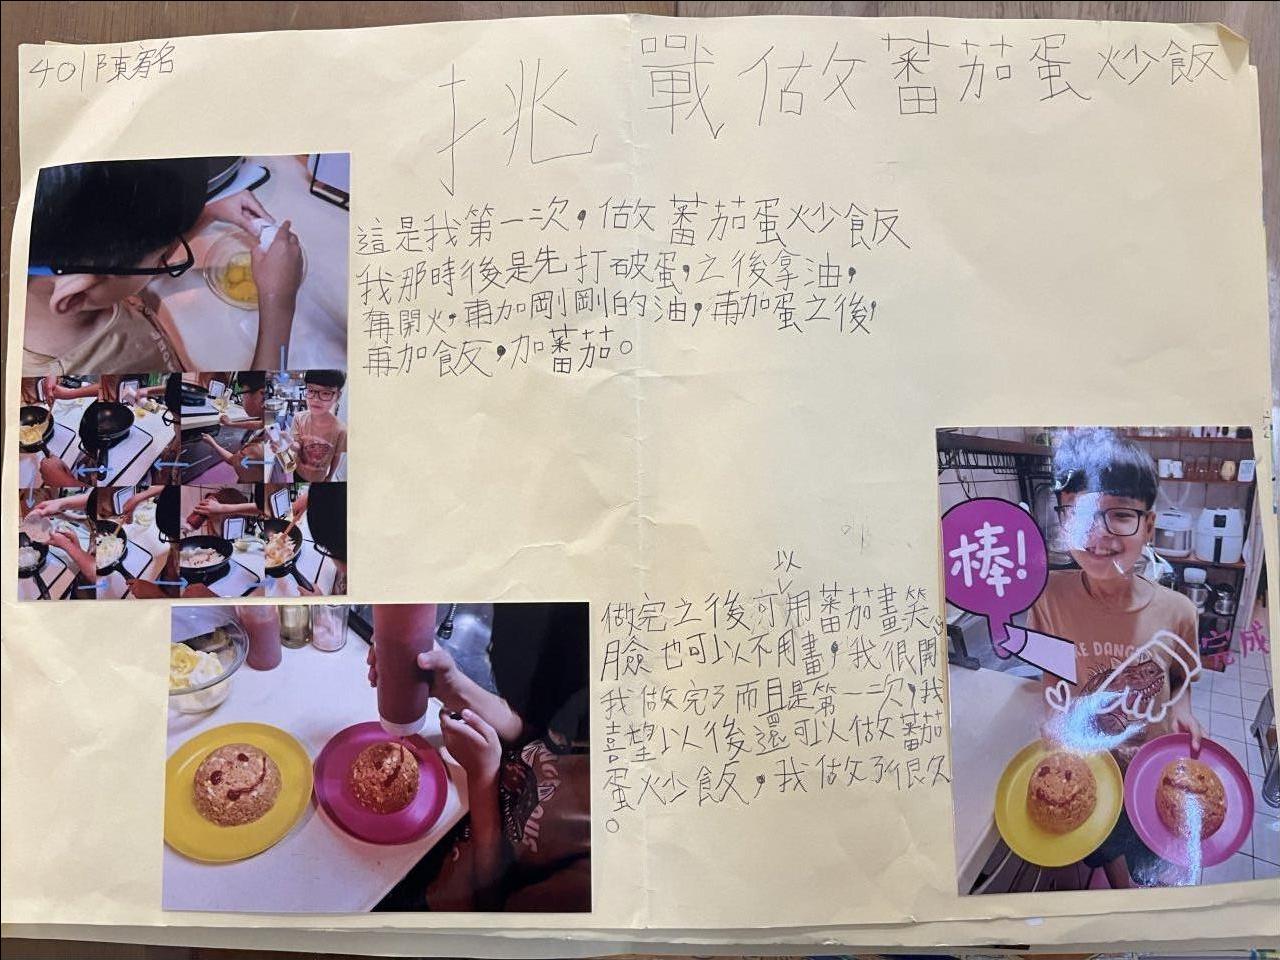 401陳宥名
挑戰做蕃茄蛋炒飯
這是我第一次，做蕃茄蛋炒飯
我那時後是先打破蛋，之後拿油，
再開火，再加剛剛的油，再加蛋之後，
再加飯，加蕃茄。
做完之後可以用蕃茄畫笑
臉也可以不用畫，我很開心
我做完了而且是第一次，我
喜望以後還可以做蕃茄
蛋炒飯，我做了很久
。
棒!
完成